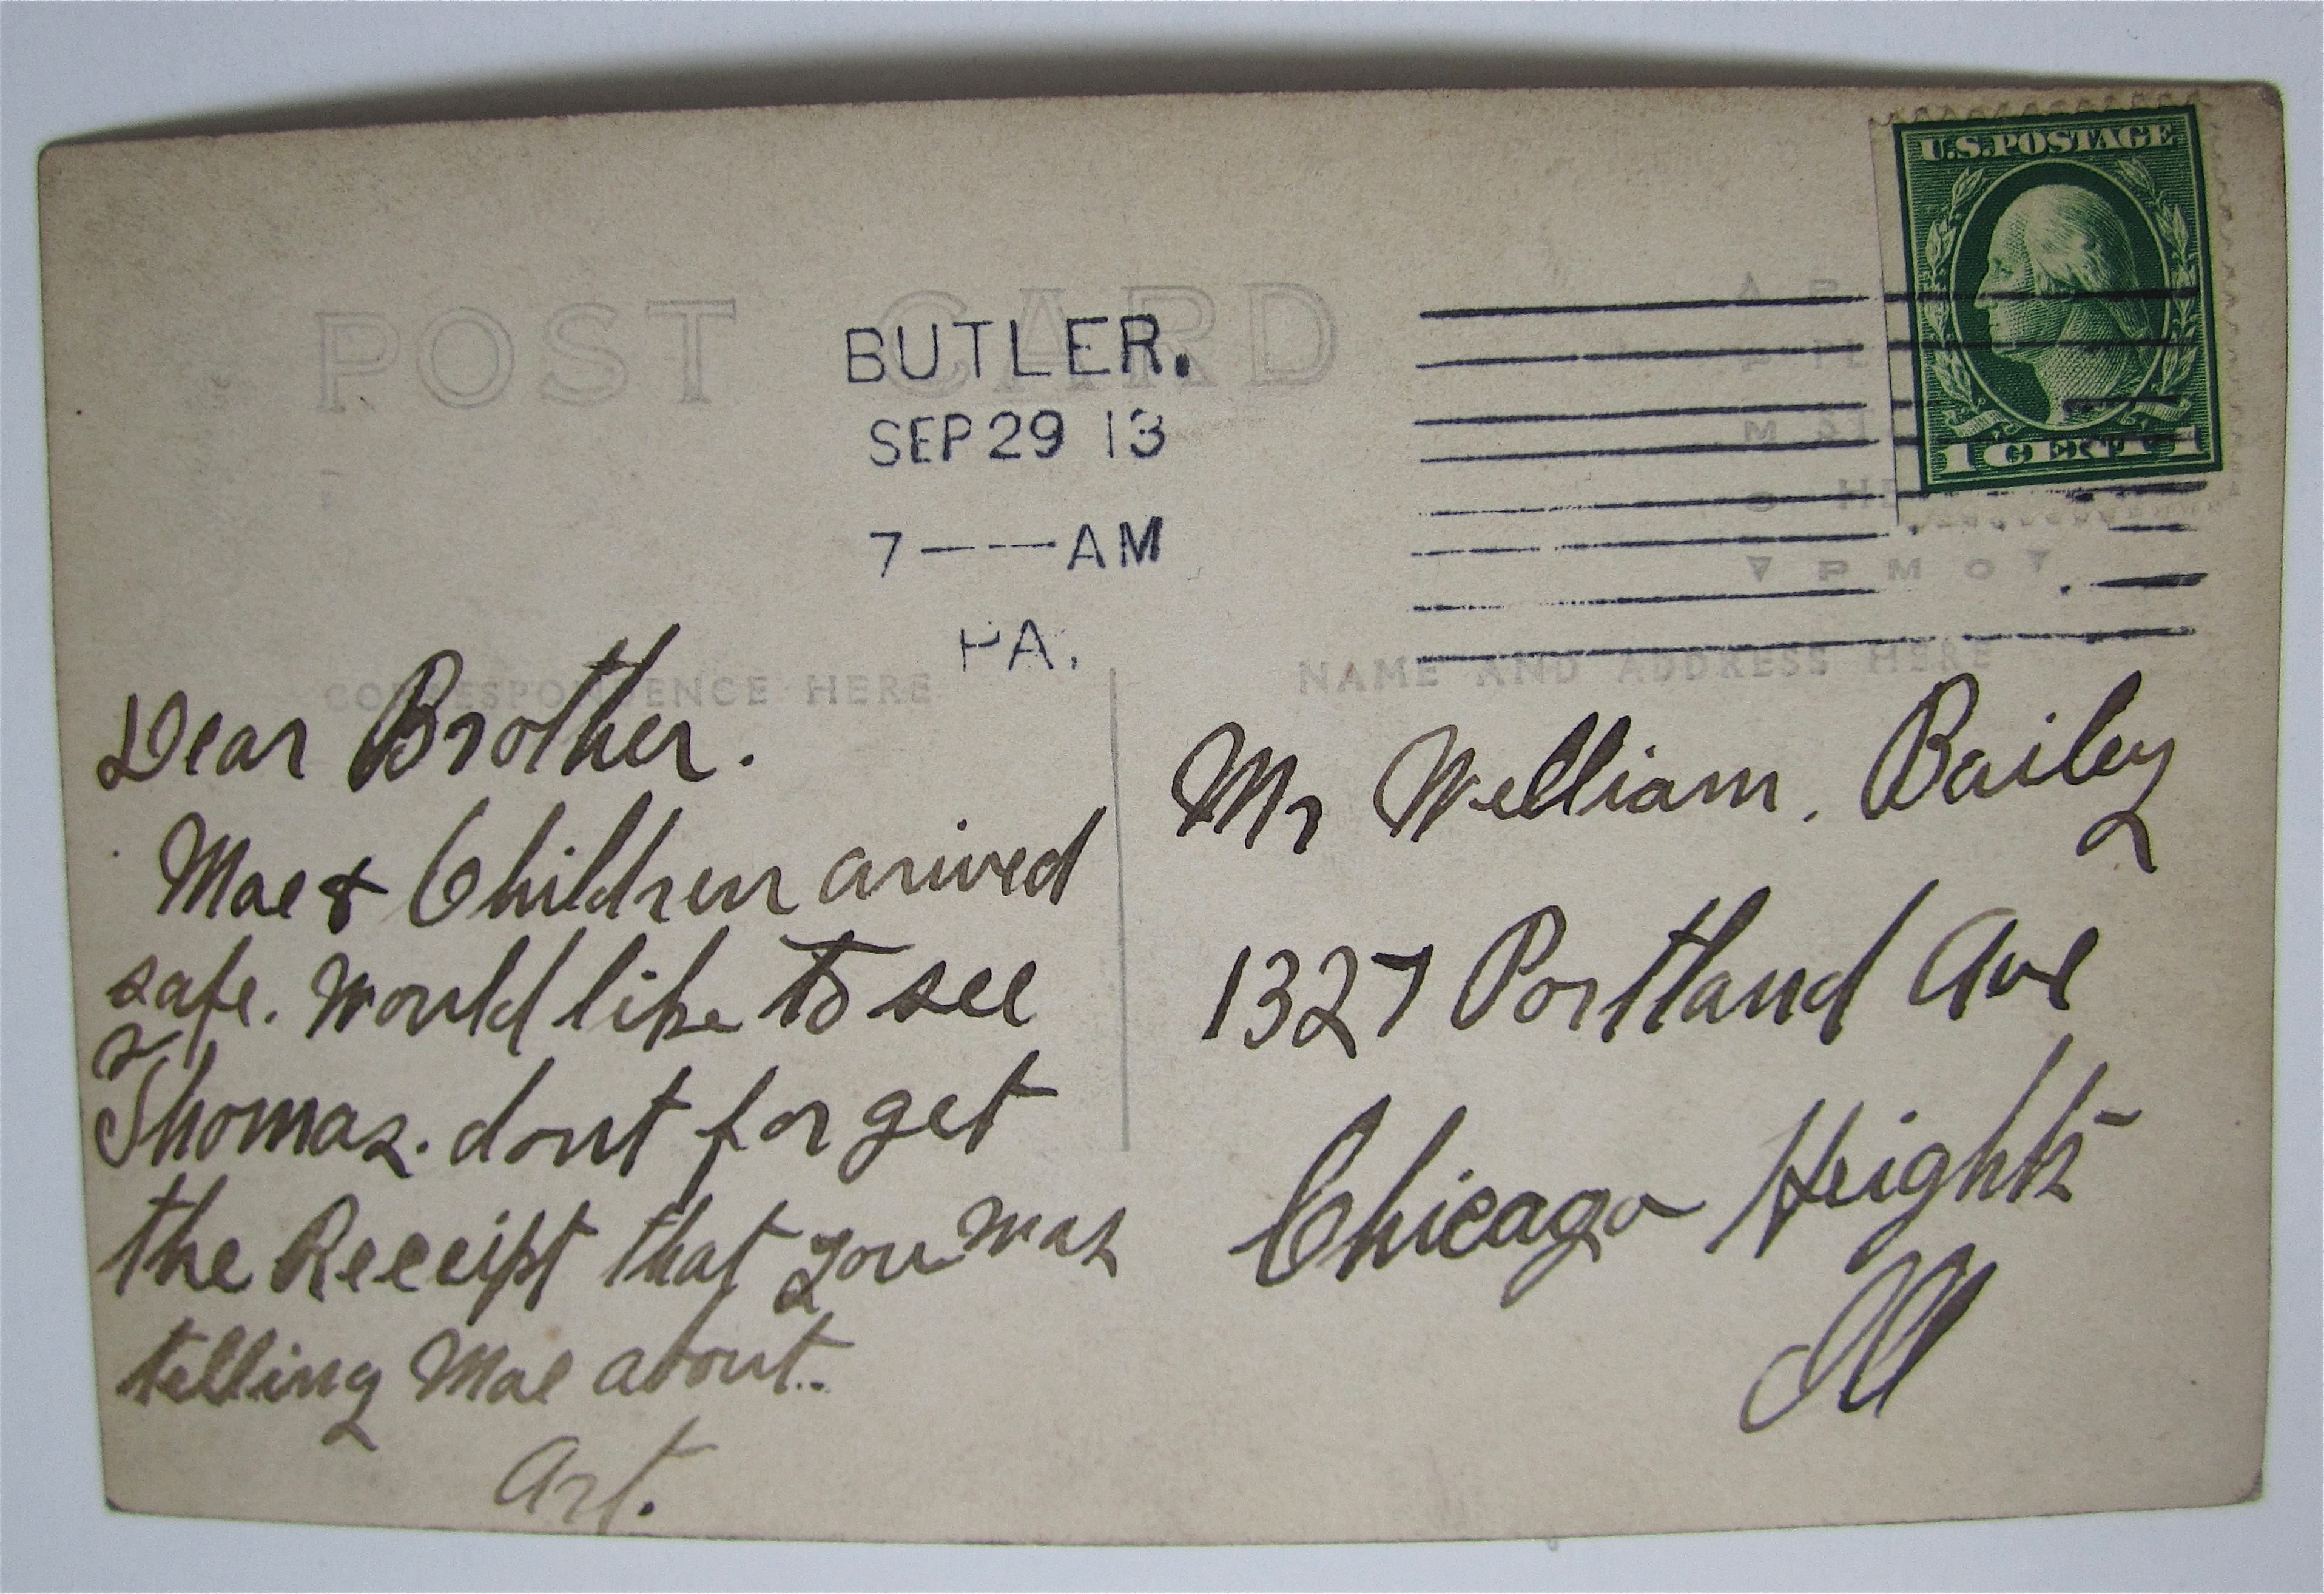 POST CARD
BUTLER.
SEP 29 13
7 — AM
PA.
U.S. POSTAGE
1 CENT 1
CORRESPONDENCE HERE
NAME AND ADDRESS HERE
Dear Brother.
Mae & Children arived
safe. Would like to see
Thomas. dont forget
the Receipt that you was
telling Mae about..
Art.
Mr William. Bailey
1327 Portland Ave
Chicago Heights
Ill